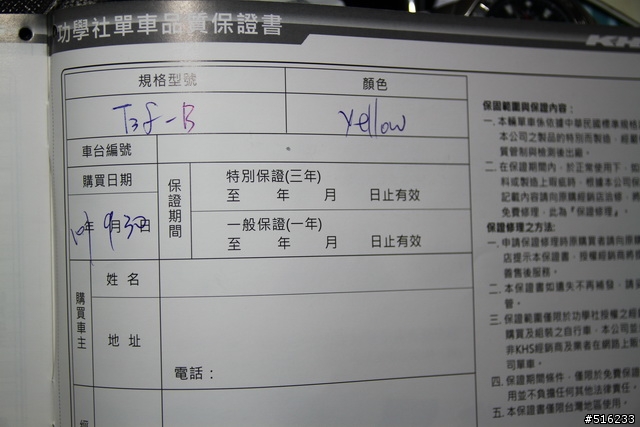 功學社單車品質保證書
KHS
規格型號
顏色
T3F-B
Yellow
車台編號
購買日期
保證期間
特別保證(三年)
至 年 月 日止有效
年9月30日
一般保證(一年)
至 年 月 日止有效
購買車主
姓名
地址
電話：
保固範圍與保證內容：
一. 本輪車係依據中華民國標準規格
本公司之製品的特別而製造，經嚴
質管制與檢測後出廠。
二. 在保證期間內，於正常使用下，如
料或製造上瑕疵時，根據本公司保
記載內容請向原購經銷店洽修，將
免費修理，此為『保證修理』。
保證修理之方法:
一. 申請保證修理時原購買者請向原購
店提示本保證書，授權經銷商將使
善售後服務。
二. 本保證書如遺失不再補發，請妥
管。
三. 保證範圍僅限於功學社授權之經銷
購買及組裝之自行車，本公司並
非KHS經銷商及業者在網路上販
司單車。
四. 保證期間條件，僅限於免費保證
用並不負擔任何其他法律責任。
五. 本保證書僅限台灣地區使用。
#516233